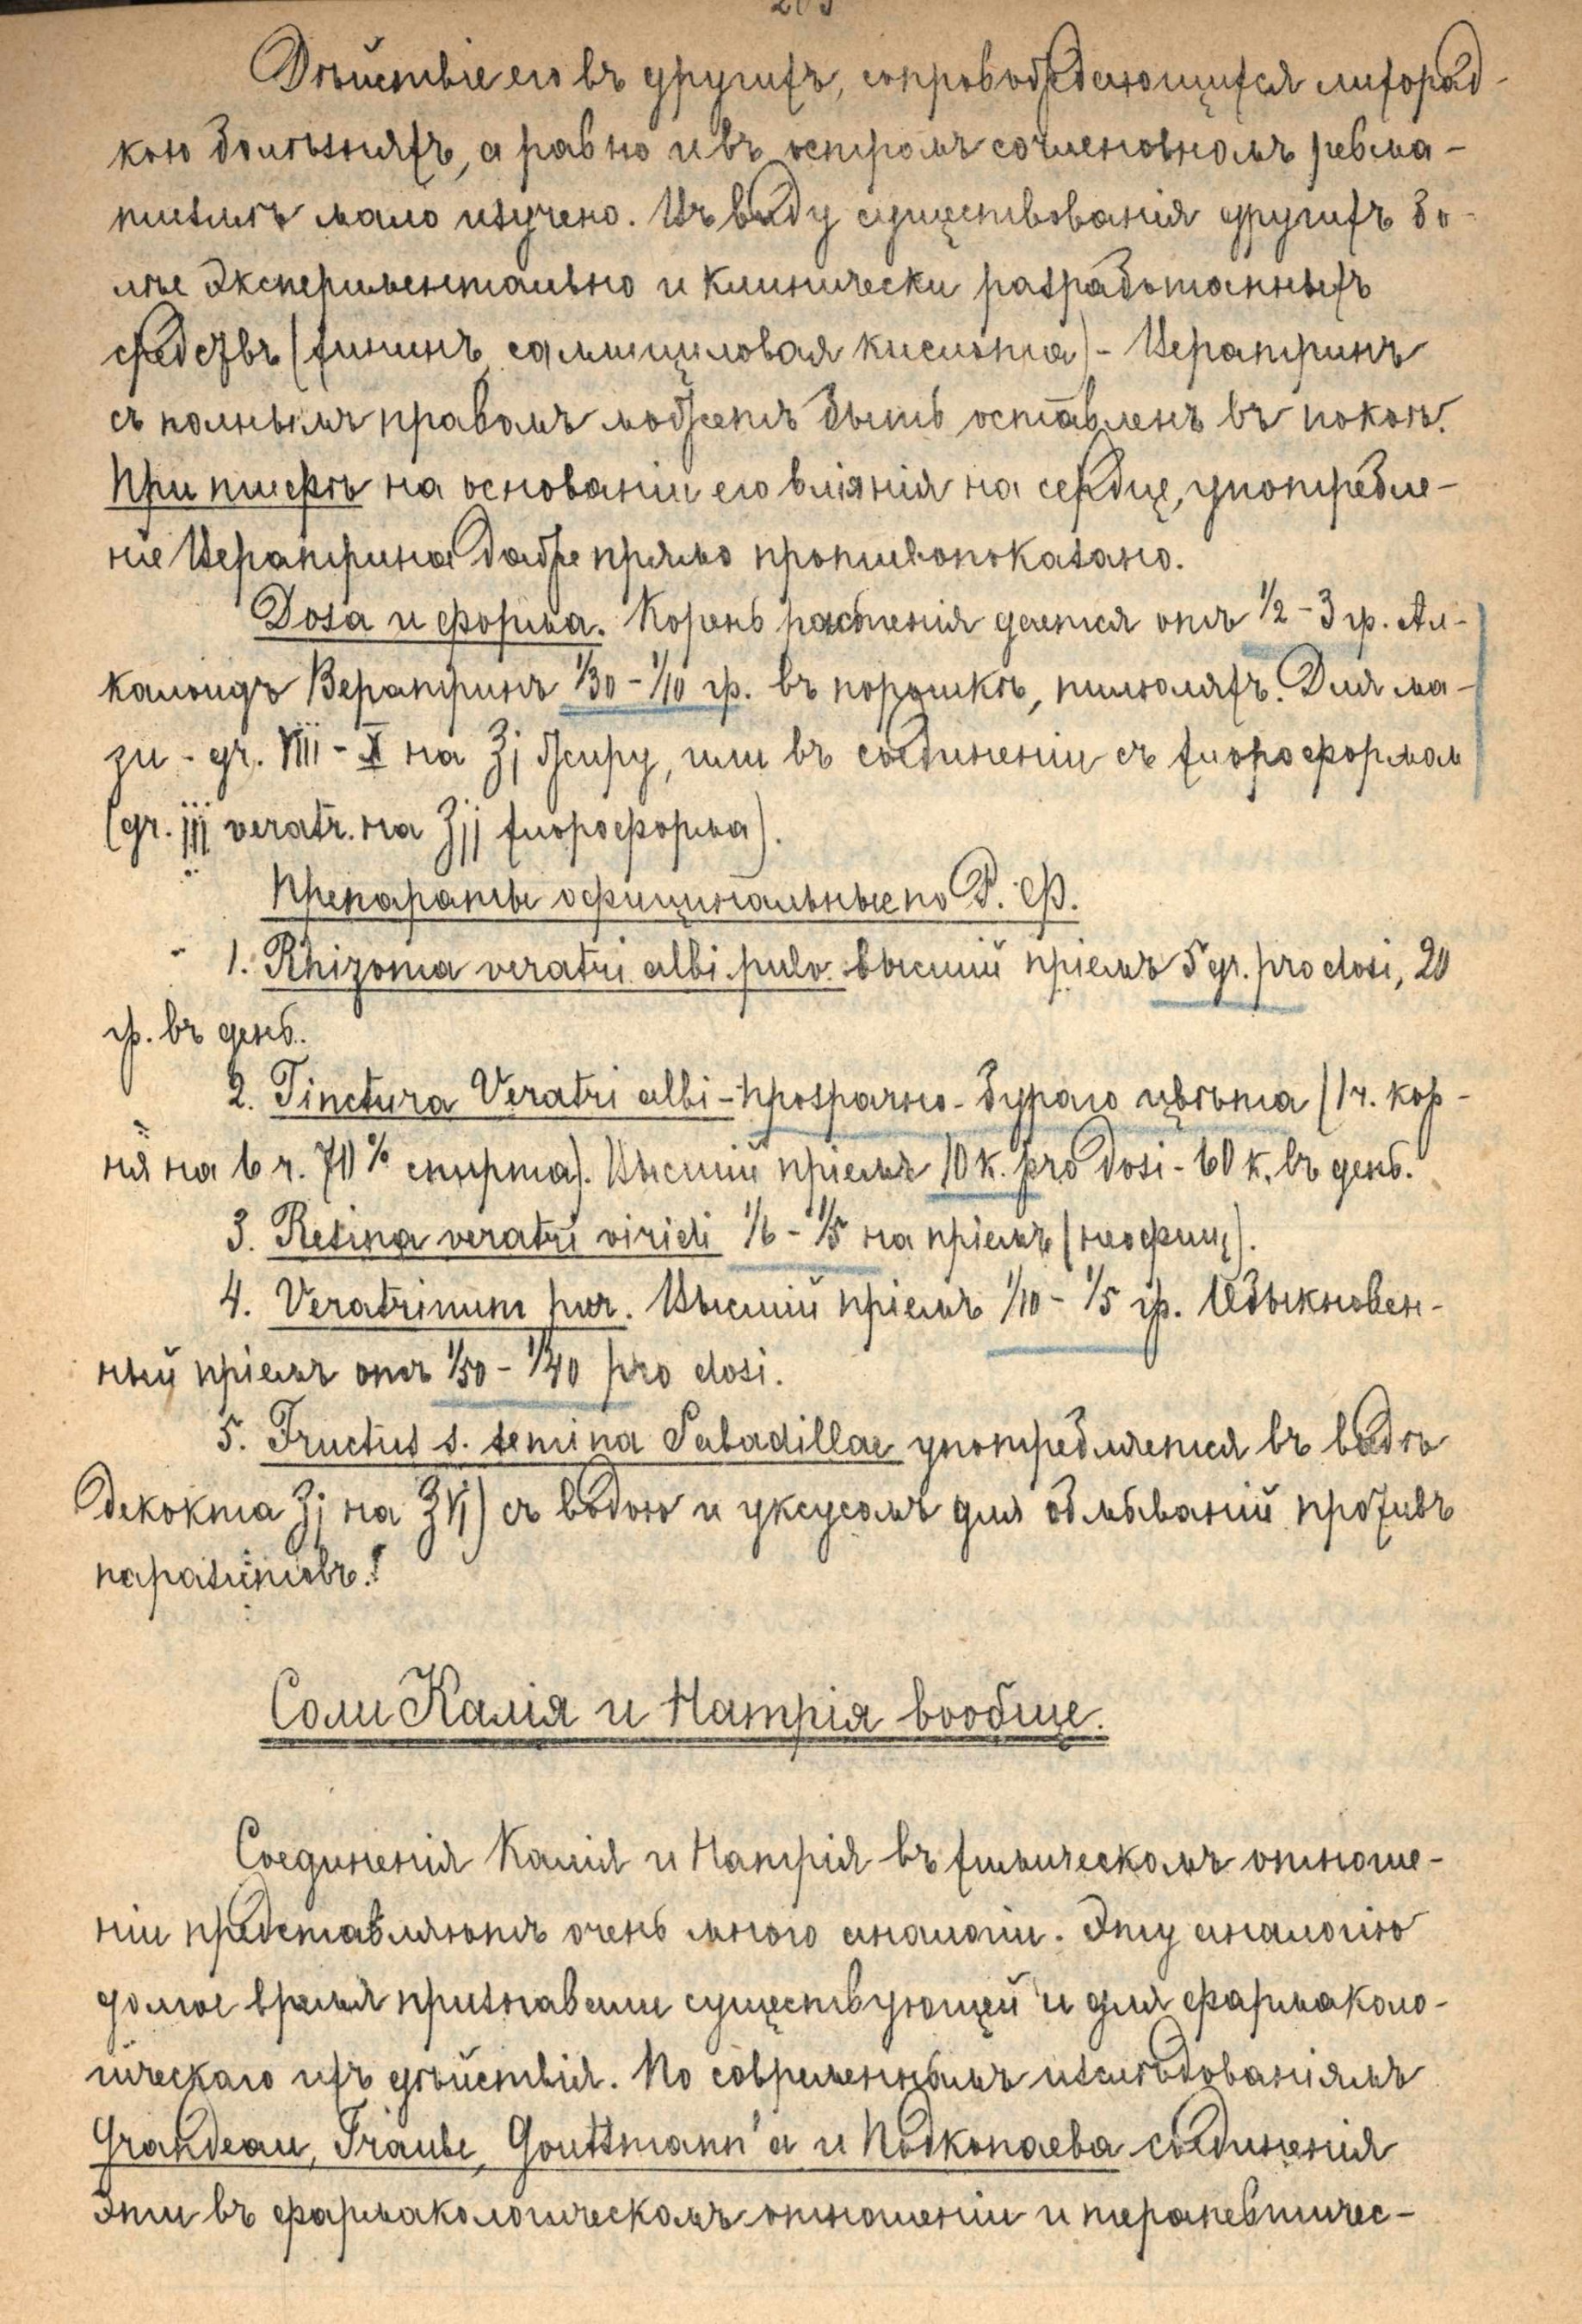 Дѣйствіе его въ другихъ, сопровождающихся лихорад-
кою болѣзняхъ, а равно и въ остромъ сочленовномъ ревма-
тизмѣ мало изучено. Въ виду существованія другихъ бо-
лѣе экспериментально и клинически разработанныхъ
средствъ (хининъ, салициловая кислота) - Вератринъ
съ полнымъ правомъ можетъ быть оставленъ въ покоѣ.
При тифѣ на основаніи его вліянія на сердце, употребле-
ніе Вератрина даже прямо противопоказано.
Доза и форма. Корень растенія дается отъ 1/2 - 3 гр. Ал-
калоидъ Вератринъ 1/30 - 1/10 гр. въ порошкѣ, пилюляхъ. Для ма-
зи - gr. VIII - X на ʒj жиру, или въ соединеніи съ хлороформом
(gr. jjj veratr. на ʒjj хлороформа).
Препараты официнальные по Р. Ф.
1. Rhizoma veratri albi pulv. высшій пріемъ 5 gr. pro dosi, 20
гр. въ день.
2. Tinctura Veratri albi - прозрачно-бураго цвѣта (1 ч. кор-
ня на 6 ч. 70 % спирта). Высшій пріемъ 10 к. pro dosi - 60 к. въ день.
3. Resina veratri viridi 1/6 - 1/5 на пріемъ (неофиц).
4. Veratrinum pur. Высшій пріемъ 1/10 - 1/5 гр. Обыкновен-
ный пріемъ отъ 1/50 - 1/40 pro dosi.
5. Fructus s. semina Sabadillae употребляется въ видѣ
декокта ʒj на ℥Vj) съ водою и уксусомъ для обмываній противъ
паразитовъ.
Соли Калія и Натрія вообще.
Соединенія Калія и Натрія въ химическомъ отноше-
ніи представляютъ очень много аналогіи. Эту аналогію
долгое время признавали существующей и для фармаколо-
гическаго ихъ дѣйствія. По современнымъ изслѣдованіямъ
Grandeau, Traube, Gouttmann'а и Подкопаева соединенія
эти въ фармакологическомъ отношеніи и терапевтичес-